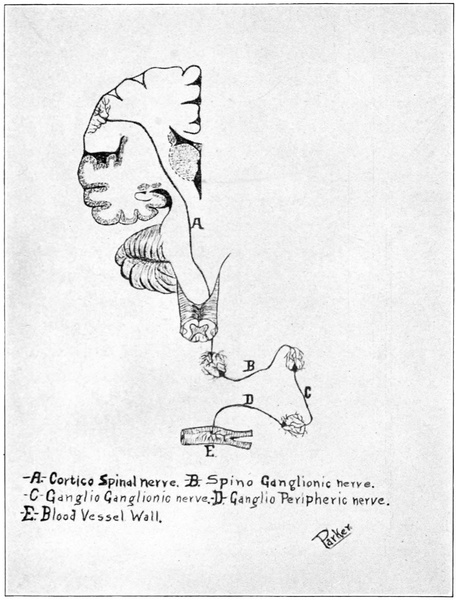 A
B
C
D
E.
-A- Cortico Spinal nerve. B- Spino Ganglionic nerve.
-C- Ganglio Ganglionic nerve. D- Ganglio Peripheric nerve.
-E- Blood Vessel Wall.
Parker.